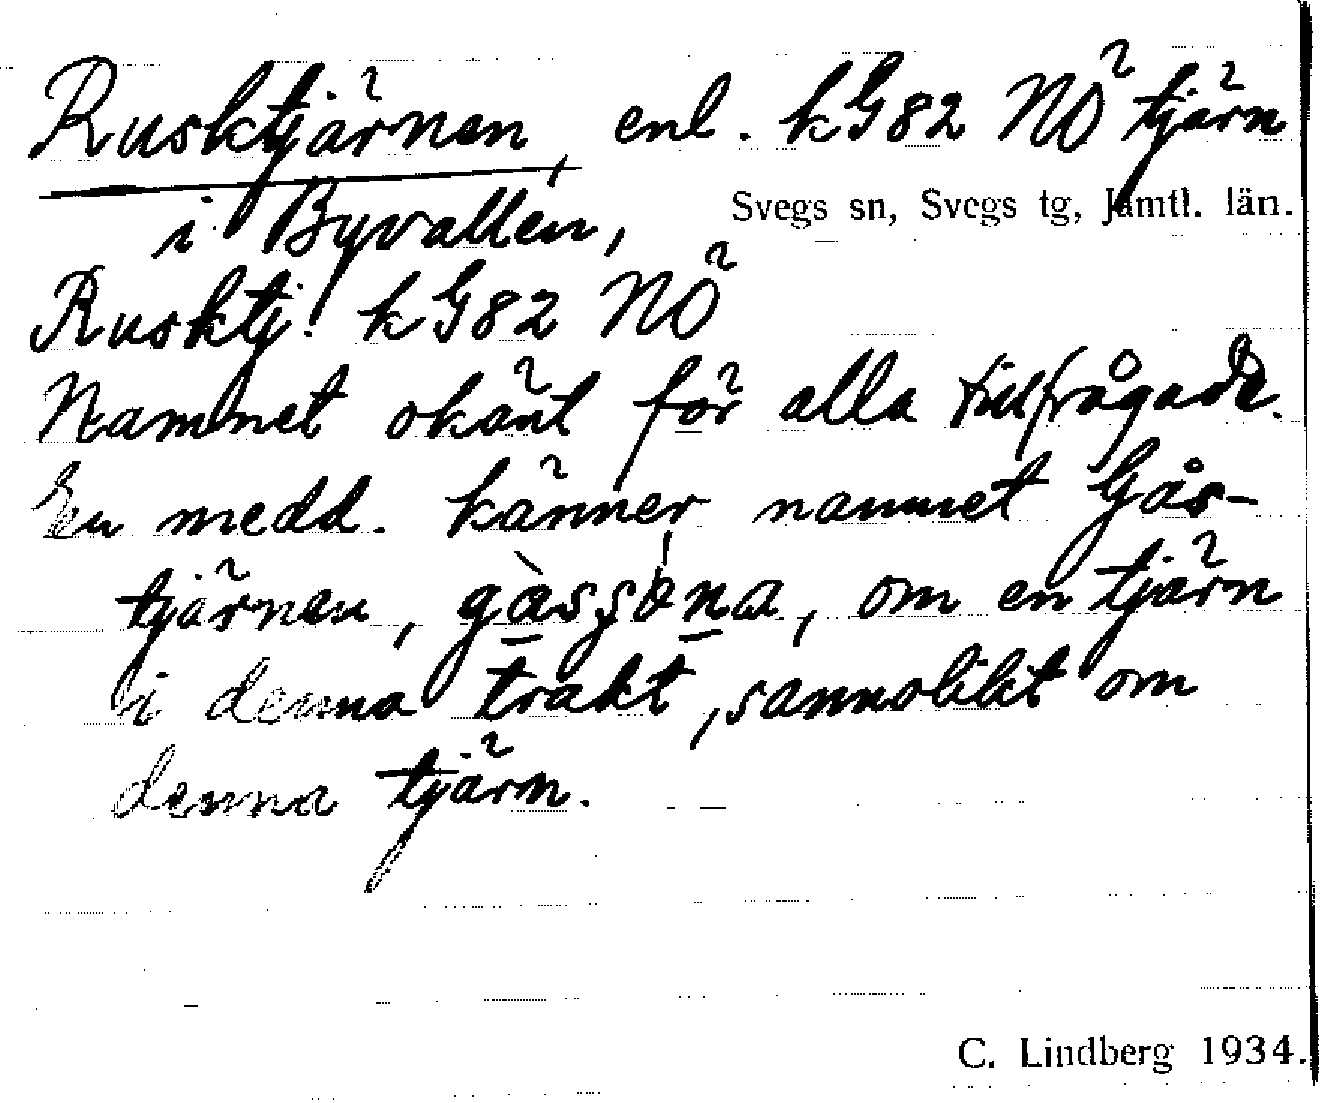 Rusktjärnen, enl. kG82 NÖ tjärn
i Byvallen,
Svegs sn, Svegs tg, Jämtl. län.
Rusktj. kG82 NÖ
Namnet okänt för alla tillfrågade.
En medd. känner namnet Gås-
tjärnen, om en tjärn
i denna trakt, sannolikt om
denna tjärn.
C. Lindberg 1934.